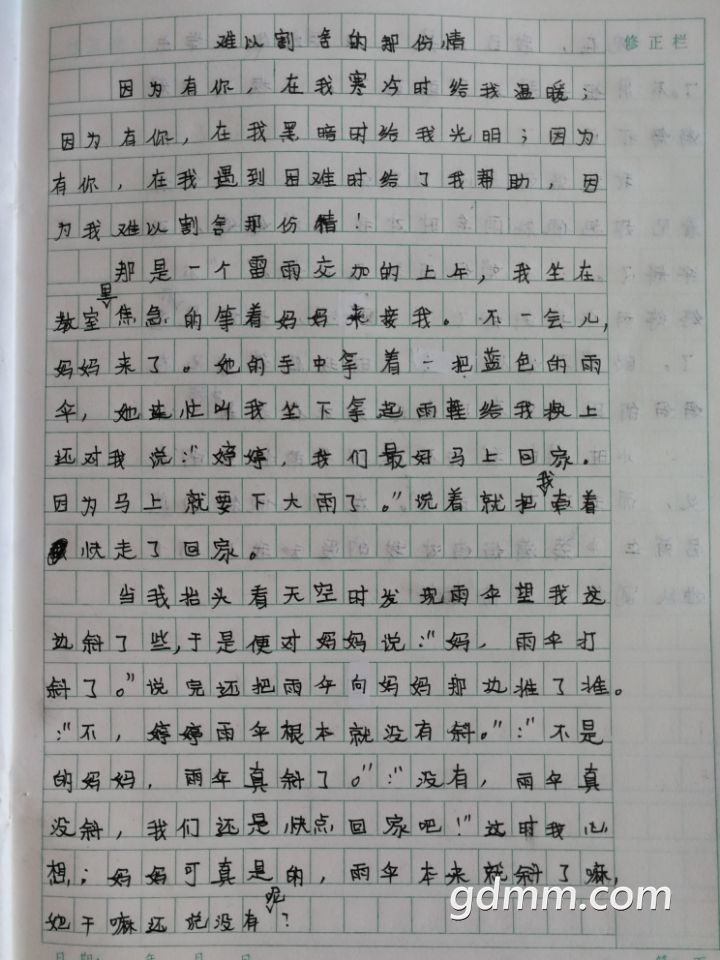 难以割舍的那份情
修正栏
因为有你，在我寒冷时给我温暖；
因为有你，在我黑暗时给我光明；因为
有你，在我遇到困难时给了我帮助，因
为我难以割舍那份情！
那是一个雷雨交加的上午，我坐在
教室里焦急的等着妈妈来接我。不一会儿，
妈妈来了。她的手中拿着一把蓝色的雨
伞，她连忙叫我坐下拿起雨鞋给我换上
还对我说：“婷婷，我们最好马上回家。
因为马上就要下大雨了。”说着就把我牵着
快走了回家。
当我抬头看天空时发现雨伞望我这
边斜了些，于是便对妈妈说：“妈，雨伞打
斜了。”说完还把雨伞向妈妈那边推了推。
：“不，婷婷雨伞根本就没有斜。”：“不是
的妈妈，雨伞真斜了。”：“没有，雨伞真
没斜，我们还是快点回家吧！”这时我心
想，：妈妈可真是的，雨伞本来就斜了嘛，
她干嘛还说没有呢？
gdmm.com